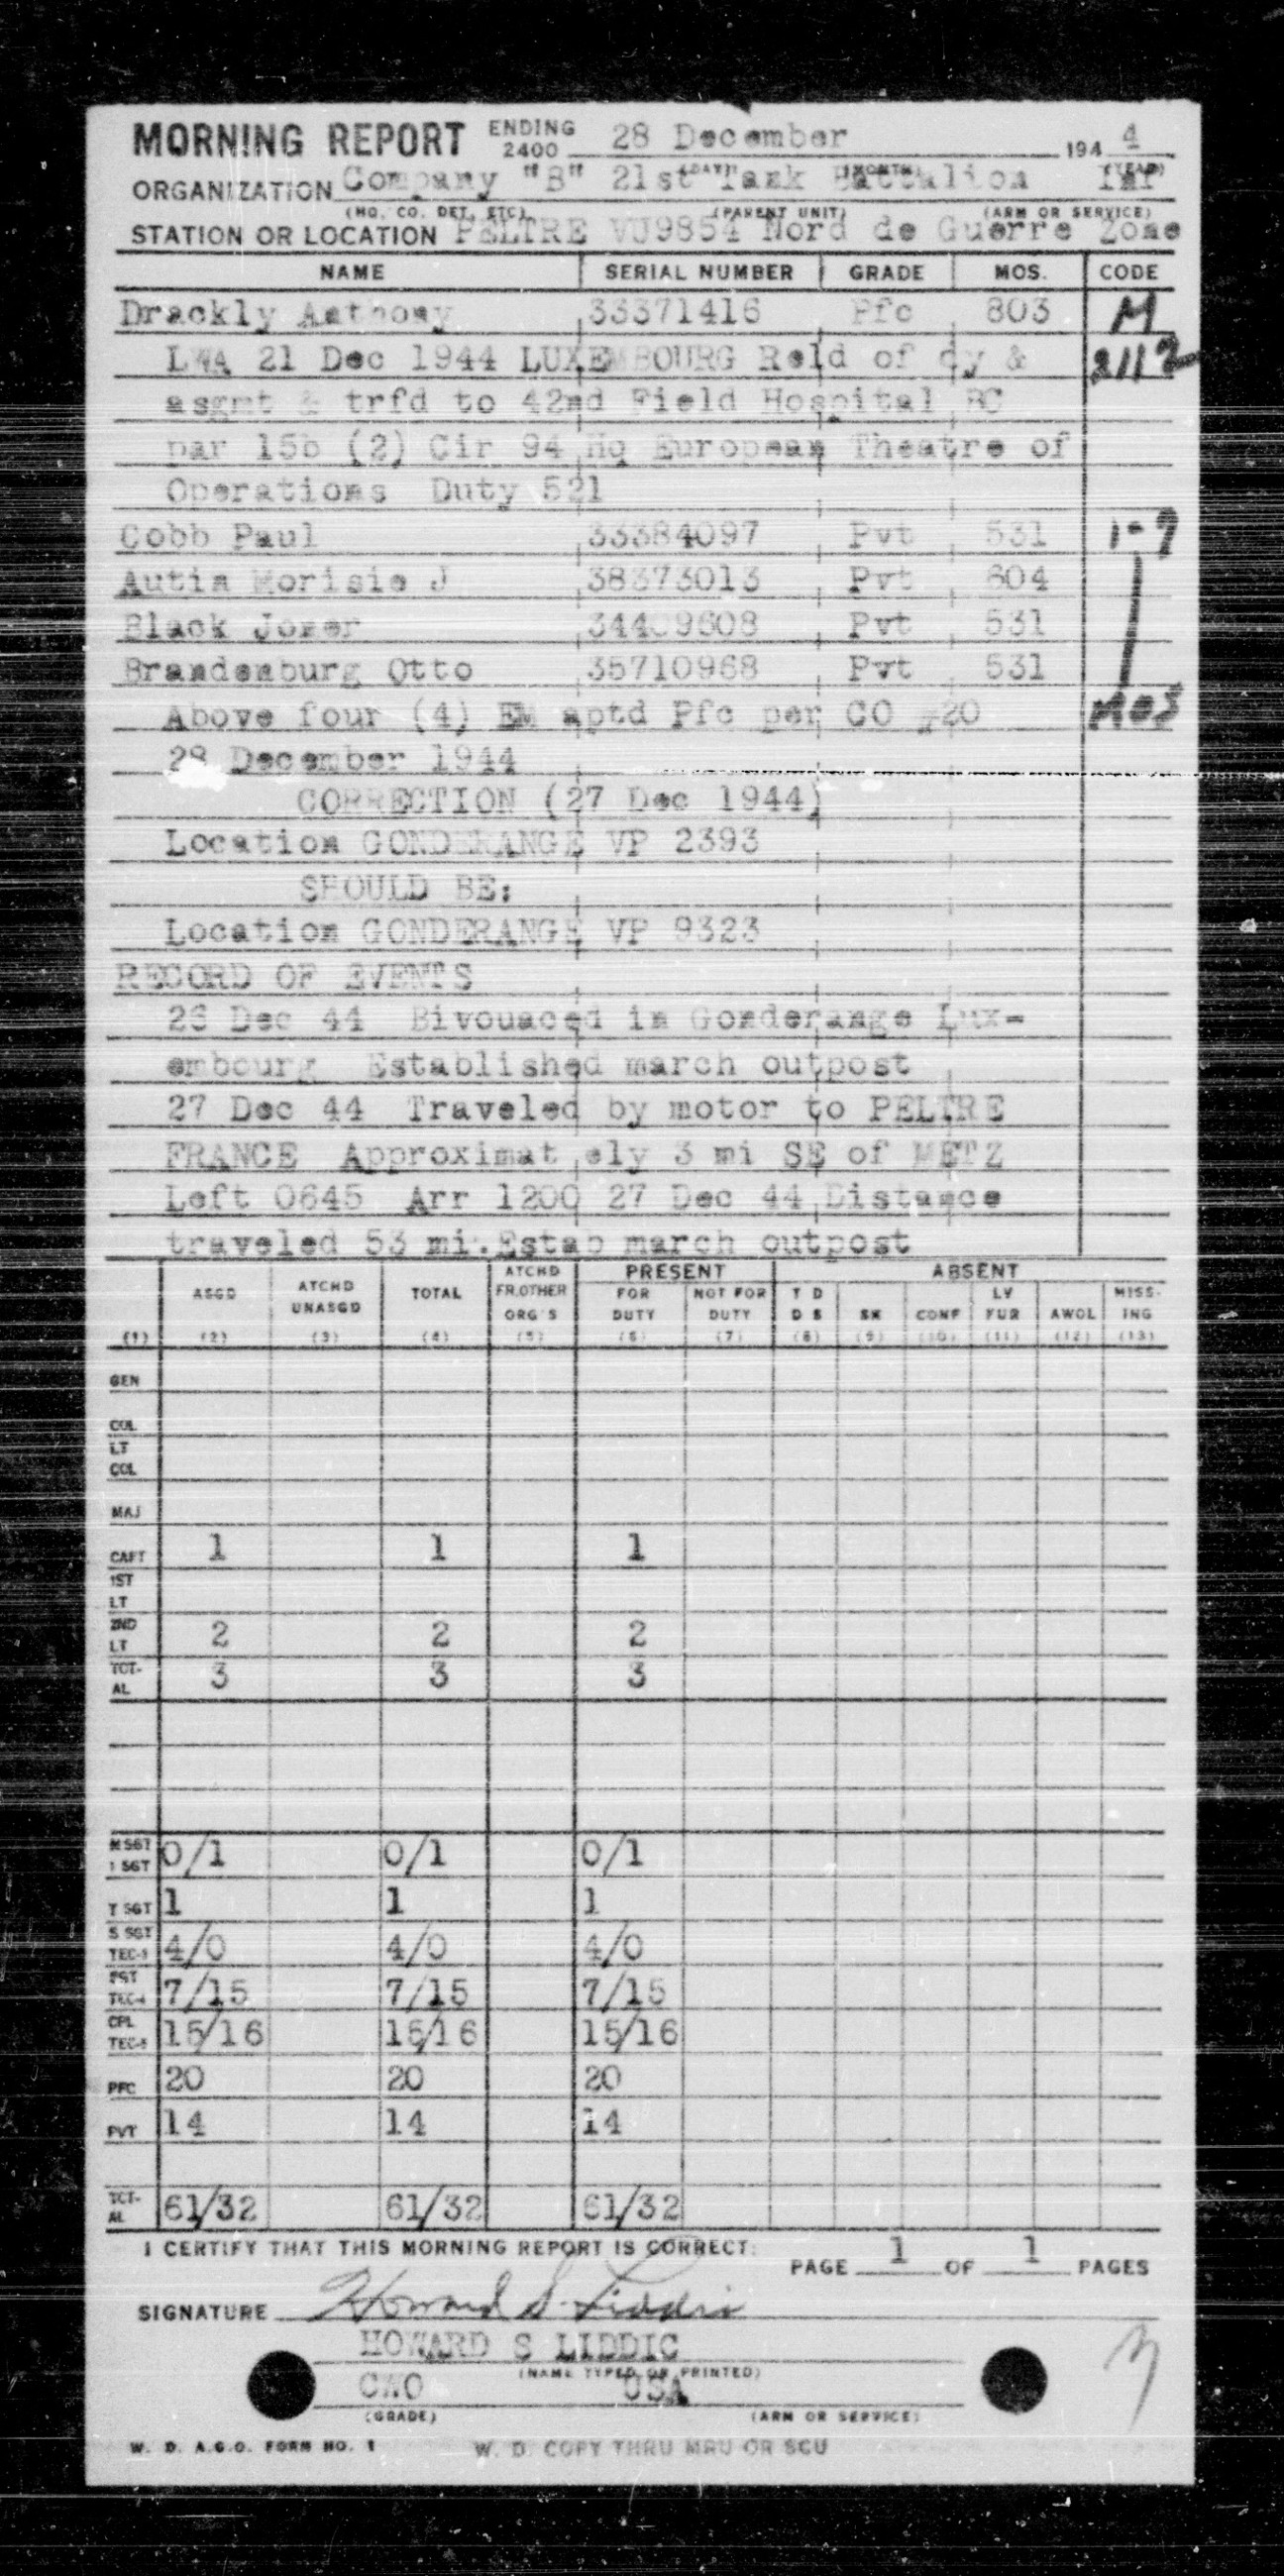 MORNING REPORT ENDING 2400 28 December 194 4
(DAY) (MONTH) (YEAR)
ORGANIZATION Company "B" 21st Tank Battalion Inf
(HQ. CO. DET. ETC). (PARENT UNIT) (ARM OR SERVICE)
STATION OR LOCATION PELTRE VU9854 Nord de Guerre Zone
NAME SERIAL NUMBER GRADE MOS. CODE
Drackly Anthony 33371416 Pfc 803 M
LWA 21 Dec 1944 LUXEMBOURG Reld of dy & 2112
asgmt & trfd to 42nd Field Hospital BC
par 15b (2) Cir 94 Hq European Theatre of
Operations Duty 521
Cobb Paul 33384097 Pvt 531 1-9
Autin Morisie J 38373013 Pvt 604
Black Jomer 34409608 Pvt 531
Brandenburg Otto 35710968 Pvt 531
Above four (4) EM aptd Pfc per CO #20 MOS
28 December 1944
CORRECTION (27 Dec 1944)
Location GONDERANGE VP 2393
SHOULD BE:
Location GONDERANGE VP 9323
RECORD OF EVENTS
26 Dec 44 Bivouaced in Gonderange Lux-
embourg Established march outpost
27 Dec 44 Traveled by motor to PELTRE
FRANCE Approximat ely 3 mi SE of METZ
Left 0645 Arr 1200 27 Dec 44 Distance
traveled 53 mi.Estab march outpost
ASGD ATCHD UNASGD TOTAL ATCHD FR.OTHER ORG'S PRESENT FOR DUTY NOT FOR DUTY ABSENT T D D S SK CONF LV FUR AWOL MISS- ING
(1) (2) (3) (4) (5) (6) (7) (8) (9) (10) (11) (12) (13)
GEN
COL
LT COL
MAJ
CAPT 1 1 1
1ST LT
2ND LT 2 2 2
TOT- AL 3 3 3
M SGT 1 SGT 0/1 0/1 0/1
T SGT 1 1 1
S SGT TEC-3 4/0 4/0 4/0
SGT TEC-4 7/15 7/15 7/15
CPL TEC-5 15/16 15/16 15/16
PFC 20 20 20
PVT 14 14 14
TOT- AL 61/32 61/32 61/32
I CERTIFY THAT THIS MORNING REPORT IS CORRECT:
PAGE 1 OF 1 PAGES
SIGNATURE Howard S. Liddic
HOWARD S LIDDIC
(NAME TYPED OR PRINTED)
CWO USA
(GRADE) (ARM OR SERVICE)
W. D. A.G.O. FORM NO. 1 W. D. COPY THRU MRU OR SCU